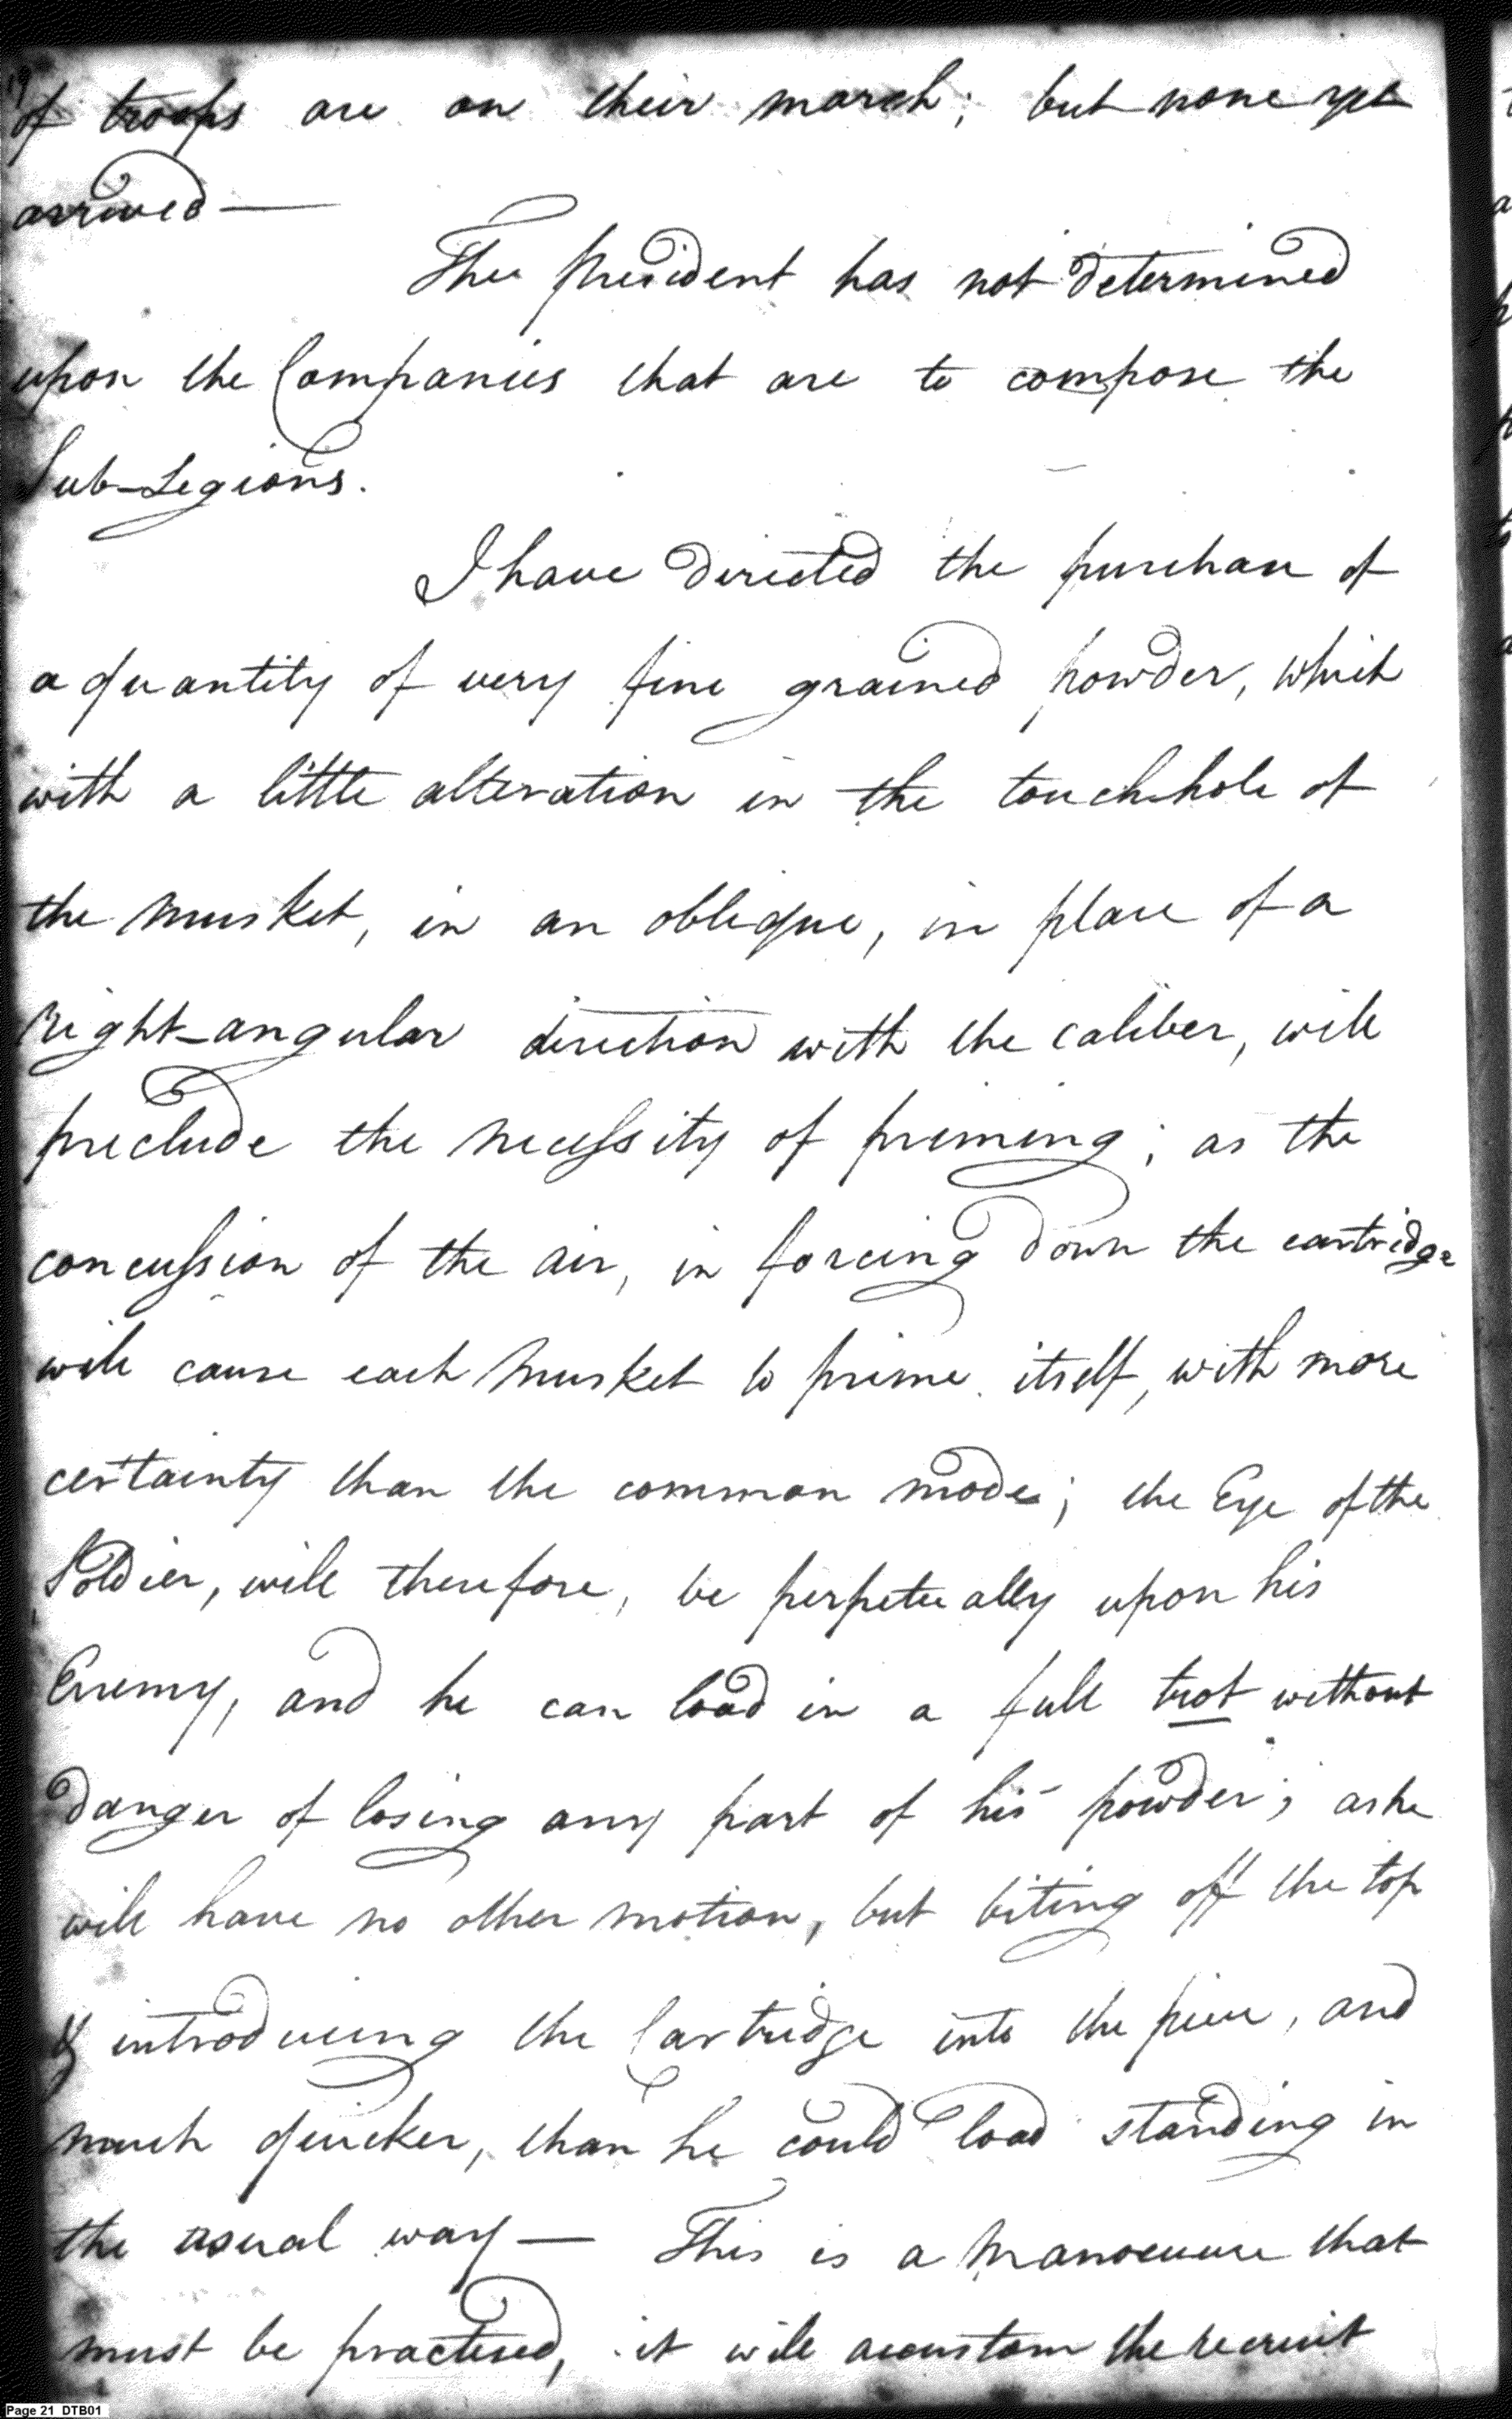 19
of troops are on their march; but none yet
arrived —
The President has not determined
upon the Companies that are to compose the
Sub-Legions.
I have directed the purchase of
a quantity of very fine grained powder, which
with a little alteration in the touch-hole of
the musket, in an oblique, in place of a
right-angular direction with the caliber, will
preclude the necessity of priming; as the
concussion of the air, in forcing down the cartridge
will cause each musket to prime itself, with more
certainty than the common mode; the Eye of the
Soldier, will therefore, be perpetually upon his
Enemy, and he can load in a full trot without
danger of losing any part of his powder; as he
will have no other motion, but biting off the top
& introducing the Cartridge into the piece, and
much quicker, than he could load standing in
the usual way — This is a manoeuvre that
must be practised, it will accustom the recruit
Page 21 DTB01